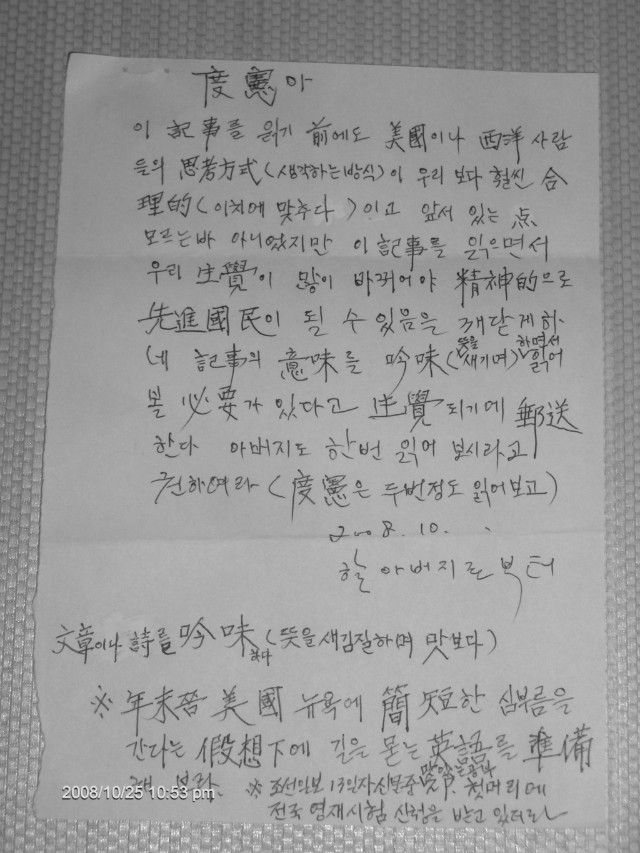 度憲아
이 記事를 읽기 前에도 美國이나 西洋 사람
들의 思考方式(생각하는방식)이 우리 보다 훨씬 合
理的(이치에 맞추다)이고 앞서 있는 点
모르는바 아니었지만 이 記事를 읽으면서
우리 生覺이 많이 바뀌어야 精神的으로
先進國民이 될 수 있음을 깨닫게하
네 記事의 意味를 吟味(뜻을 새기며)하면서 읽어
볼 必要가 있다고 生覺되기에 郵送
한다 아버지도 한번 읽어 보시라고
권하여라 (度憲은 두번정도 읽어보고)
2008.10.
할아버지로부터
文章이나 詩를 吟味하다(뜻을 새김질하며 맛보다)
※ 年末쯤 美國 뉴욕에 簡短한 심부름을
간다는 假想下에 길을 묻는 英語를 準備
해 보라. ※ 조선일보 13일자신문중 P. 첫머리에
전국 영재시험 신청을 받고 있더라
2008/10/25 10:53 pm